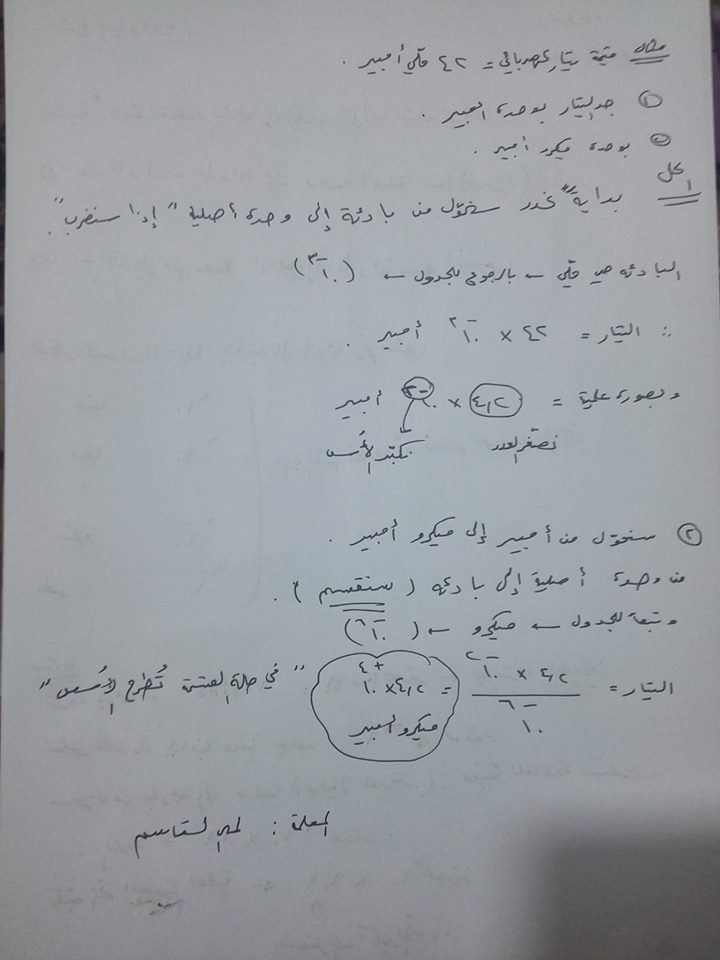 مثال قيمة تيار كهربائي = ٤٢ ملّي أمبير .
① جد التيار بوحدة أمبير .
② بوحدة ميكرو أمبير .
الحل بدايةً سنحوّل من بادئة إلى وحدة أصلية " إذا سنضرب ".
البادئه هي ملّي ← بالرجوع للجدول ← ( ١٠⁻٣ )
∴ التيار = ٤٢ × ١٠⁻٣ أمبير .
وبصورة علمية = ٤,٢ × ١٠⁻٢ أمبير
نصغّر العدد نكبّر الأُسس
② سنحوّل من أمبير إلى ميكرو أمبير .
من وحدة أصلية إلى بادئه ( سنقسم ) .
وتبعا للجدول ← ميكرو ← ( ١٠⁻٦ )
التيار = ٤,٢ × ١٠⁻٢ / ١٠⁻٦ = ٤,٢ × ١٠⁺٤ ميكرو أمبير " في حالة القسمة تُطرح الأُسس "
المعلمة : لمى القاسم